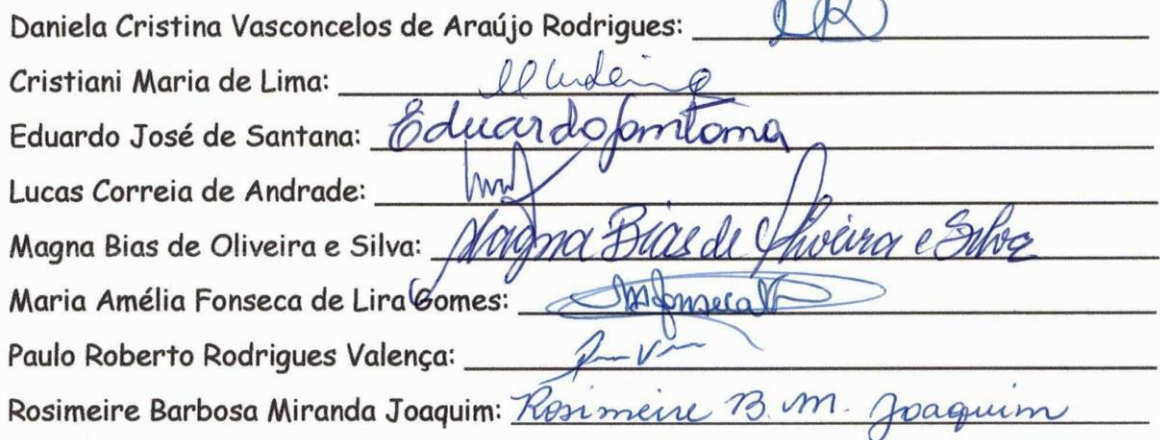 Daniela Cristina Vasconcelos de Araújo Rodrigues:
Cristiani Maria de Lima:
Eduardo José de Santana: Eduardo
Lucas Correia de Andrade:
Magna Bias de Oliveira e Silva: Magna Bias de Oliveira e Silva
Maria Amélia Fonseca de Lira Gomes:
Paulo Roberto Rodrigues Valença:
Rosimeire Barbosa Miranda Joaquim: Rosimeire B. M. Joaquim